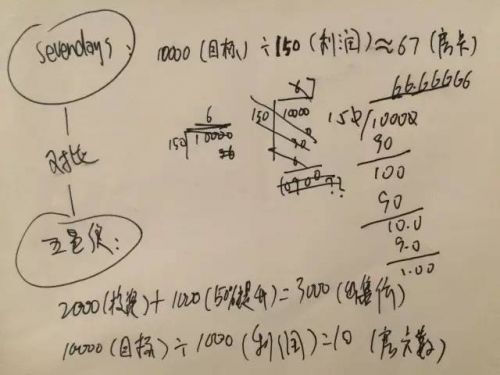 sevendays:
10000 (目标) ÷ 150 (利润) ≈ 67 (房卡)
6
150 10000
6
150 10000
66.66666
150 10000
90
100
90
10.0
9.0
1.00
对比
五星级:
2000 (投资) + 1000 (50%提升) = 3000 (销售价)
10000 (目标) ÷ 1000 (利润) = 10 (房卡数)